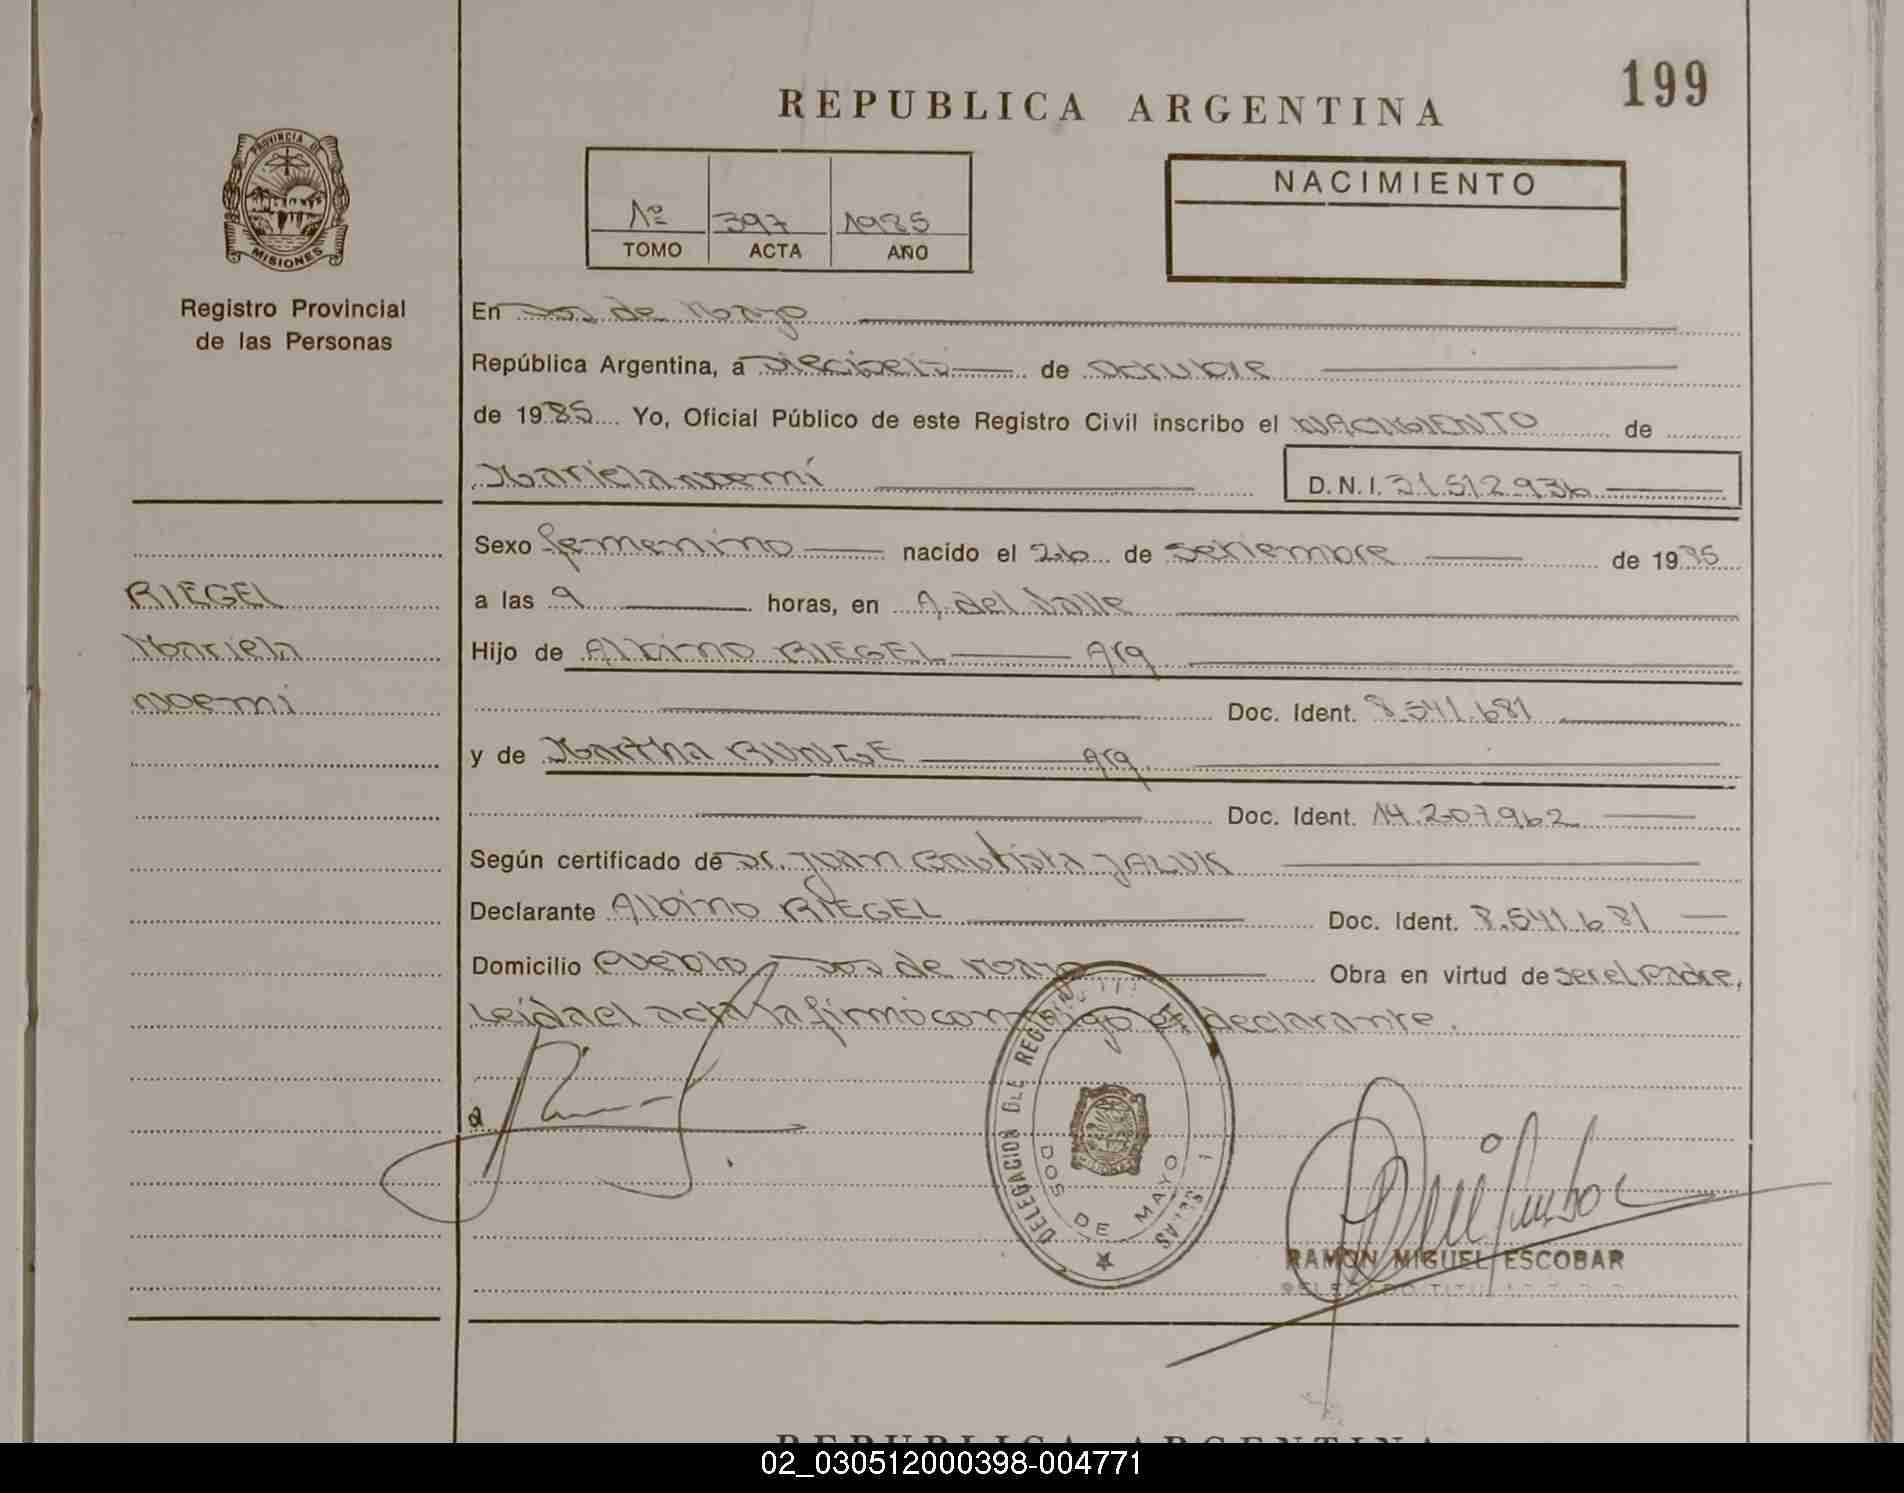 199
REPUBLICA ARGENTINA
PROVINCIA DE
MISIONES
Registro Provincial
de las Personas
1º 397 1985
TOMO ACTA AÑO
NACIMIENTO
En Dos de Mayo
República Argentina, a Dieciseis de octubre
de 1985 Yo, Oficial Público de este Registro Civil inscribo el NACIMIENTO de
Mariela Noemí
D.N.I. 31.512.936
Sexo femenino nacido el 26 de setiembre de 1985
a las 9 horas, en A. del Valle
Hijo de Albino RIEGEL Arg
Doc. Ident. 8.541.681
y de Martha RUNGE Arg.
Doc. Ident. 14.207.962
Según certificado de Dr. Juan Bautista JALUK
Declarante Albino RIEGEL Doc. Ident. 8.541.681
Domicilio Pueblo Dos de Mayo Obra en virtud de ser el Padre,
Leida el acta la firmo conmigo el declarante.
RIEGEL
Mariela
Noemi
DELEGACION DEL REGISTRO
DOS DE MAYO
RAMON MIGUEL ESCOBAR
DELEGADO TITULAR
REPUBLICA ARGENTINA
02_030512000398-004771